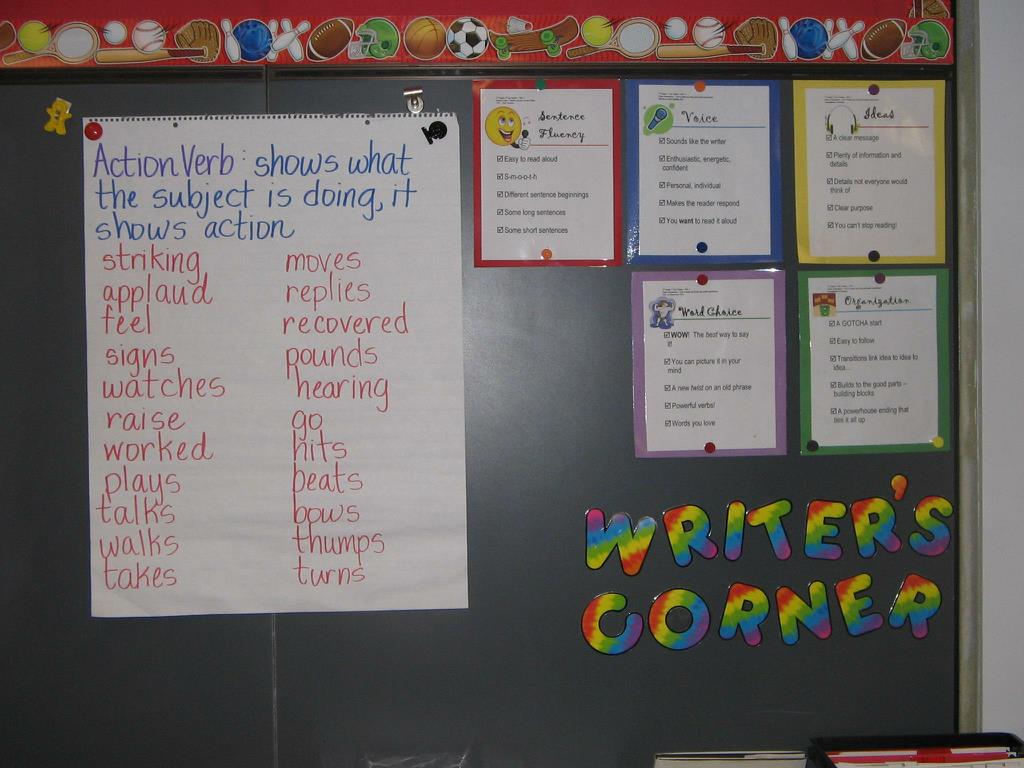 Action Verb: shows what
the subject is doing, it
shows action
striking
applaud
feel
signs
watches
raise
worked
plays
talks
walks
takes
moves
replies
recovered
pounds
hearing
go
hits
beats
bows
thumps
turns
Sentence
Fluency
Easy to read aloud
S-m-o-o-t-h
Different sentence beginnings
Some long sentences
Some short sentences
Voice
Sounds like the writer
Enthusiastic, energetic,
confident
Personal, individual
Makes the reader respond
You want to read it aloud
Ideas
A clear message
Plenty of information and
details
Details not everyone would
think of
Clear purpose
You can't stop reading!
Word Choice
WOW! The best way to say
it!
You can picture it in your
mind
A new twist on an old phrase
Powerful verbs!
Words you love
Organization
A GOTCHA start
Easy to follow
Transitions link idea to idea to
idea...
Builds to the good parts –
building blocks
A powerhouse ending that
ties it all up
WRITER'S
CORNER